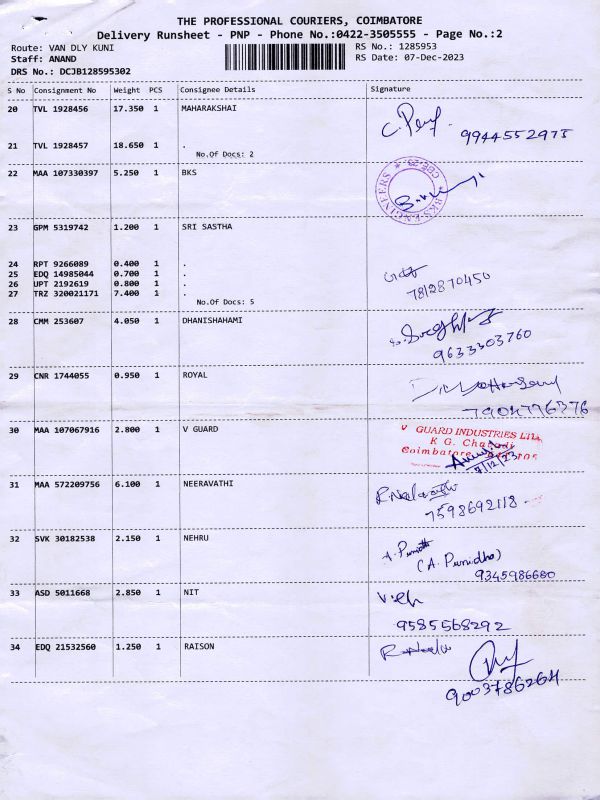 THE PROFESSIONAL COURIERS, COIMBATORE
Delivery Runsheet - PNP - Phone No.:0422-3505555 - Page No.:2
Route: VAN DLY KUNI RS No.: 1285953
Staff: ANAND RS Date: 07-Dec-2023
DRS No.: DCJB128595302
S No Consignment No Weight PCS Consignee Details Signature
20 TVL 1928456 17.350 1 MAHARAKSHAI
9944552975
21 TVL 1928457 18.650 1 .
No.Of Docs: 2
22 MAA 107330397 5.250 1 BKS
BKS ENGINEERS
23 GPM 5319742 1.200 1 SRI SASTHA
24 RPT 9266089 0.400 1 .
25 EDQ 14985044 0.700 1 .
26 UPT 2192619 0.800 1 .
27 TRZ 320021171 7.400 1 .
7812870450
No.Of Docs: 5
28 CMM 253607 4.050 1 DHANISHAHAMI
9633303760
29 CNR 1744055 0.950 1 ROYAL
7904776376
30 MAA 107067916 2.800 1 V GUARD
V GUARD INDUSTRIES Ltd.,
K G. Chavadi
Coimbatore
7/12/23
31 MAA 572209756 6.100 1 NEERAVATHI
7598692118
32 SVK 30182538 2.150 1 NEHRU
(A. Punidha)
9345986680
33 ASD 5011668 2.850 1 NIT
9585568292
34 EDQ 21532560 1.250 1 RAISON
9003786264